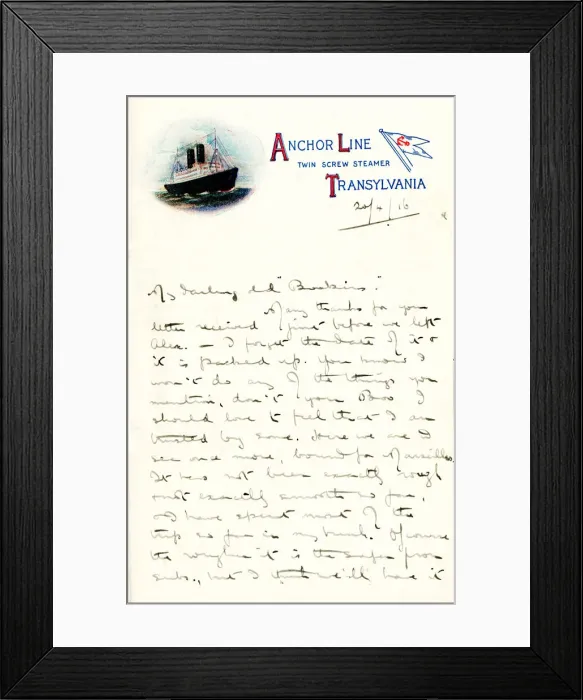 ANCHOR LINE
TWIN SCREW STEAMER
TRANSYLVANIA
20/4/16
My darling old "Bookins."
Many thanks for your
letter received just before we left
Alex. — I forget the date of it &
it is packed up. You know I
won't do any of the things you
mention, don't you Boo I
should love to feel that I am
trusted by some. Here we are I
see once more, bound for Marseilles.
It has not been exactly rough
& not exactly smooth so far,
I have spent most of the
trip so far in my bunk. Of course
the rougher it is the safer from
subs., but I think we'll have it